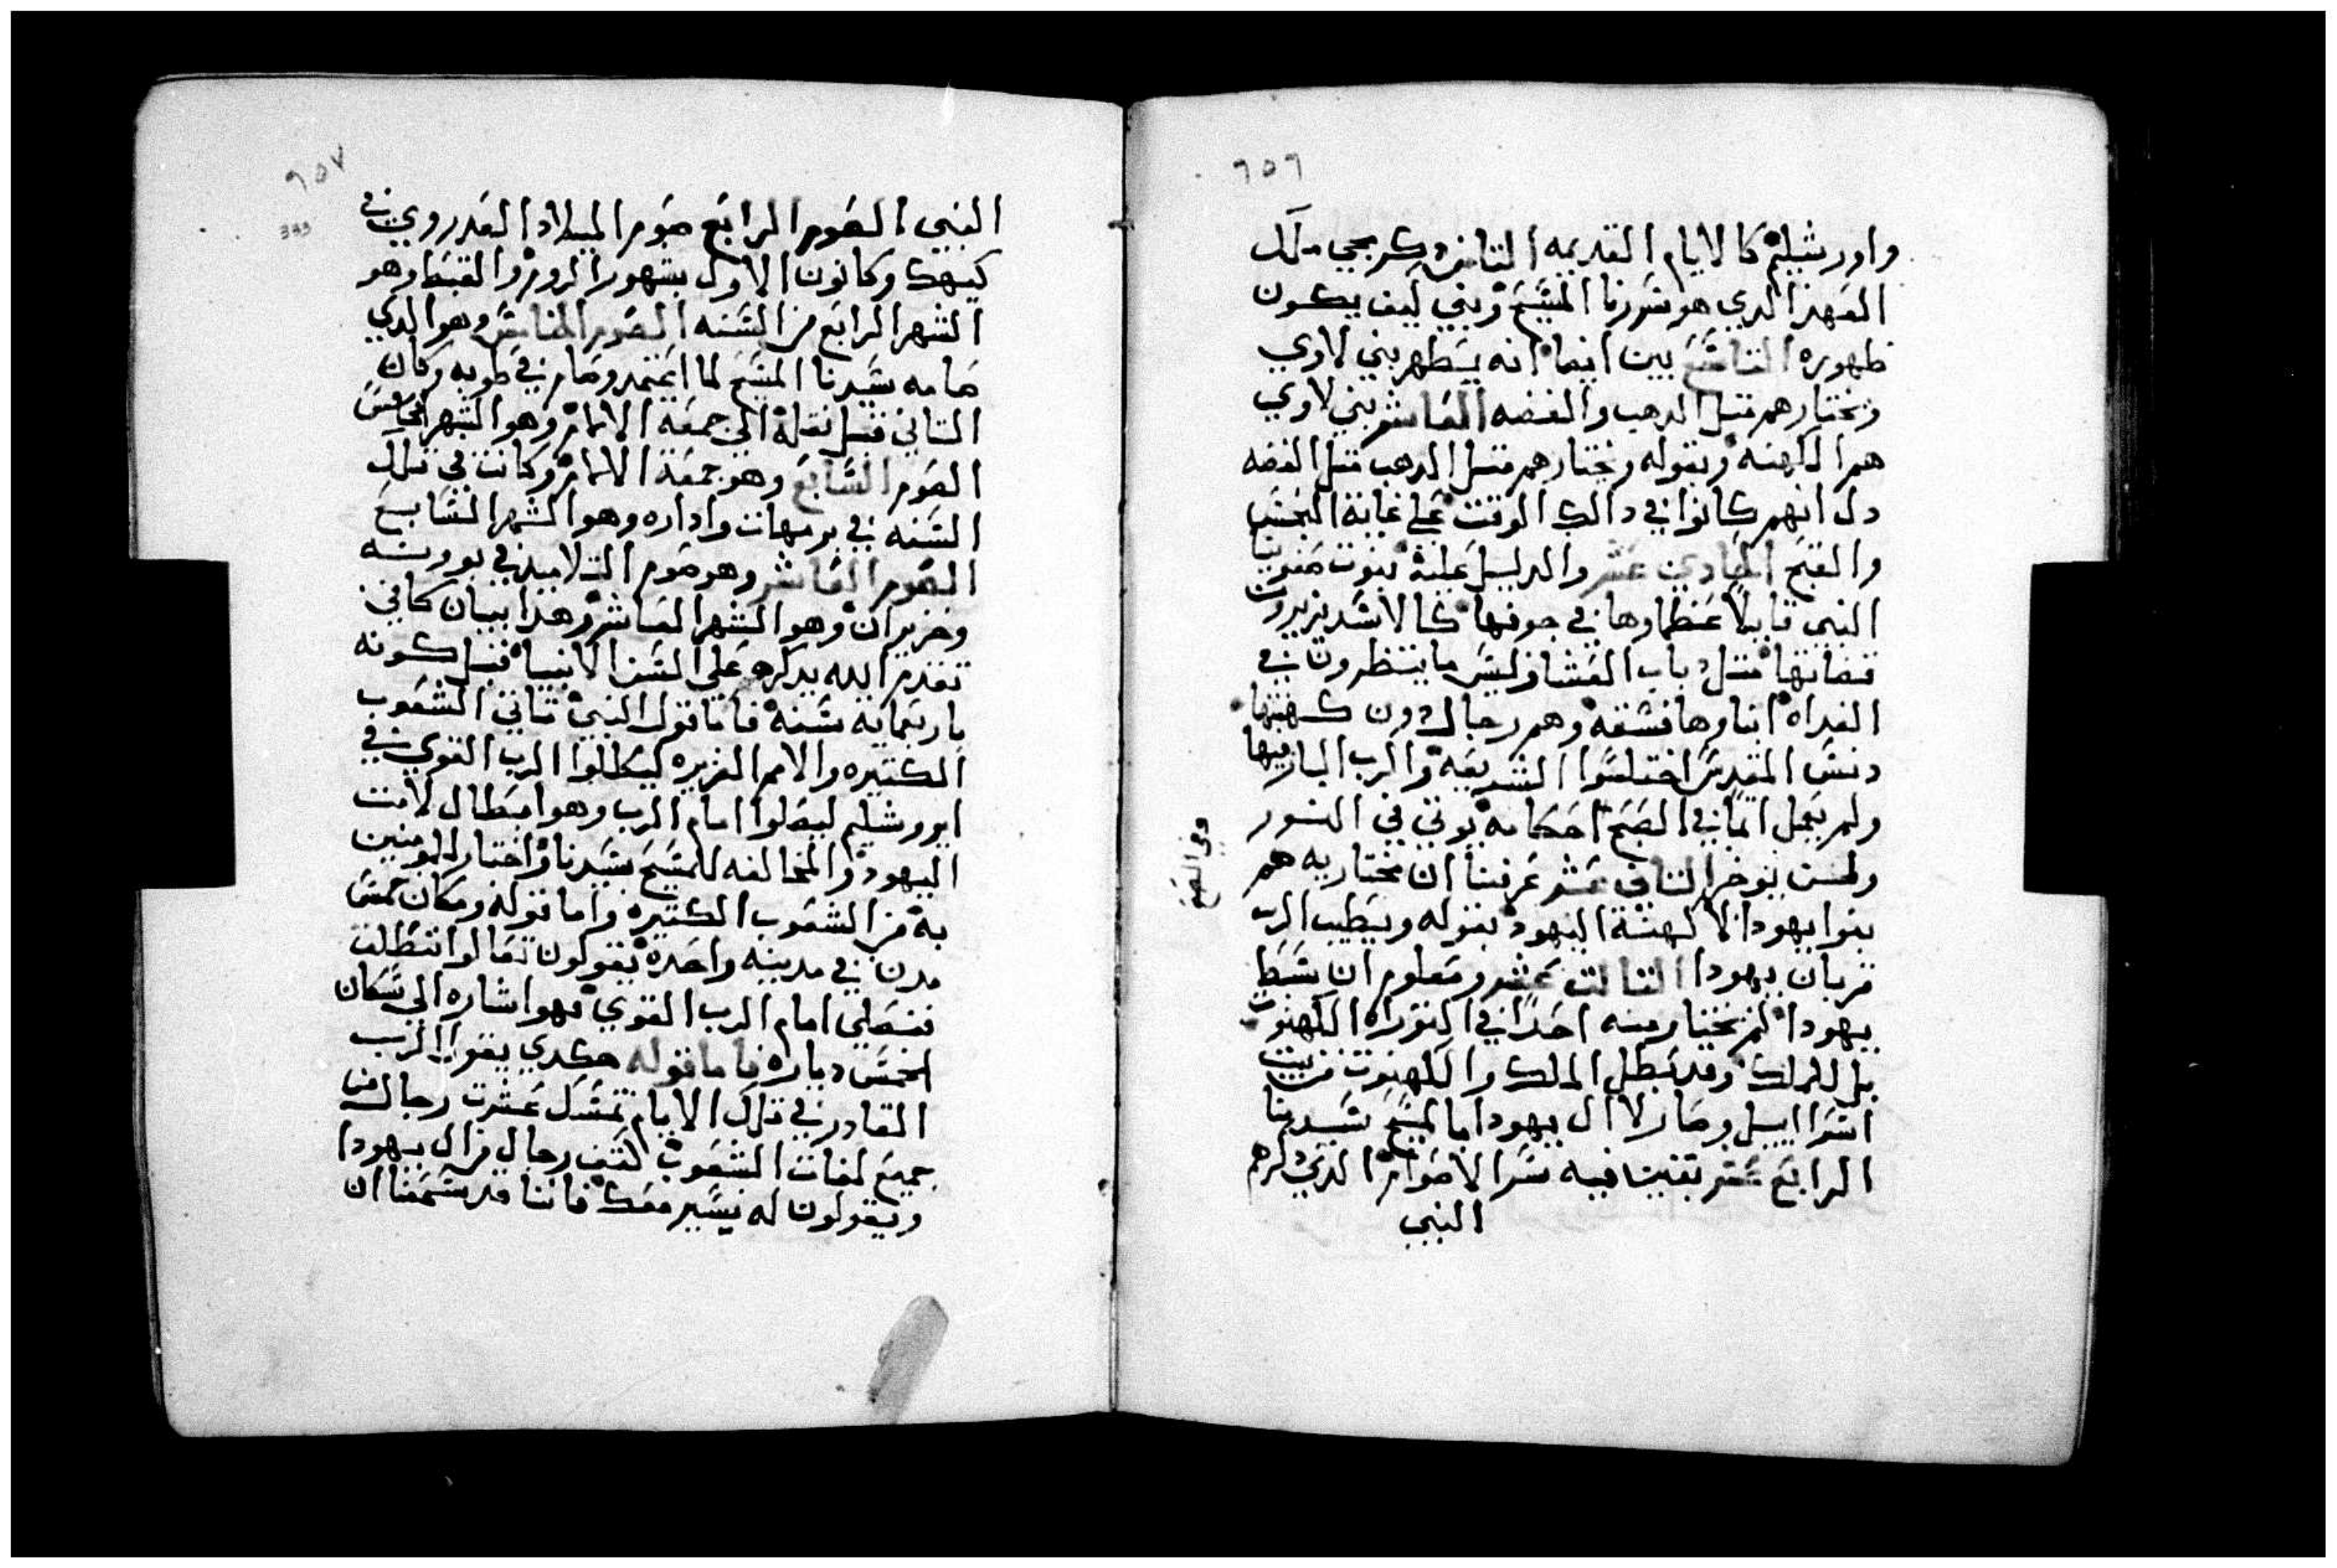 ٦٥٦
واورشليم كالايام القديمه الثامن ذكر مجي ملك
العهد الذي هو سيدنا المسيح وبني كيف يكون
ظهوره التاسع بين ايضا انه يسطهر بني لاوي
ويختارهم مثل الدهب والفضه العاشر بني لاوي
هم الكهنه وبقوله ويختارهم مثل الدهب مثل الفضه
دل انهم كانوا في دالك الوقت على غاية النجس
والقبح الحادي عشر والدليل علية نبوت صفونيا
النبي قايلا عظماوها في جوفها كالاسد يزيرون
قضاتها مثل دياب العشا وليس ما ينتظرون في
الغداه انباوها فسقه وهم رجال دون كهنتها
دنس المقدس اختلسوا الشريعه والرب البار فيها
ولم يجعل اثما في الصبح احكامه يوتي في النور
وفي الصبح
ولحسن يوخر الثاني عشر عرفنا ان مختاريه هم
بنوا يهودا لا كهنة اليهود بقوله ويطيب الرب
قربان يهودا الثالث عشر ومعلوم ان سبط
يهودا لم يختار منه احدا في التوراه الكهنوت
بل للملك وقد بطل الملك والكهنوت من بيت
اسراييل وصار لا ال يهودا بالمسيح سيدنا
الرابع عشر بقيت فيه سر الاصوام الذي ذكرهم
النبي
٦٥٧
333
النبي الصوم الرابع صوم الميلاد المقدروي في
كيهك وكانون الاول بشهور الروم والقبط وهو
الشهر الرابع من السنه الصوم الخامس وهو الذي
صامه سيدنا المسيح لما اعتمد وصام في طوبه وكان
الثاني قبل نقلة الي جمعة الالام وهو الشهر الخامس
الصوم السابع وهو جمعة الالام وكانت في تلك
السنه في برمهات واداره وهو الشهر السابع
الصوم العاشر وهو صوم التلاميد في بوونه
وحزيران وهو الشهر العاشر وهدا بيان كافي
تقدم الله بدكره علي السن الانبيا قبل كونه
باربعمايه سنه فاما قول النبي تاتي الشعوب
الكثيره والامم الغزيره ليطلوا الرب القوي في
ايروشليم ليصلوا امام الرب وهو ابطال لامت
اليهود والمخالفه للمسيح سيدنا واختار المومنين
به من الشعوب الكثيره واما قوله ومكان خمس
مدن في مدينه واحده يقولون تعالوا ننطلق
فنصلي امام الرب القوي فهو اشاره الي سكان
الخمس دياره فاما قوله هكدي يقول الرب
القادر في تلك الايام تمسك عشرت رجال من
جميع لغات الشعوب كتف رجال من ال يهودا
ويقولون له نسير معك فاننا قد سمعنا ان